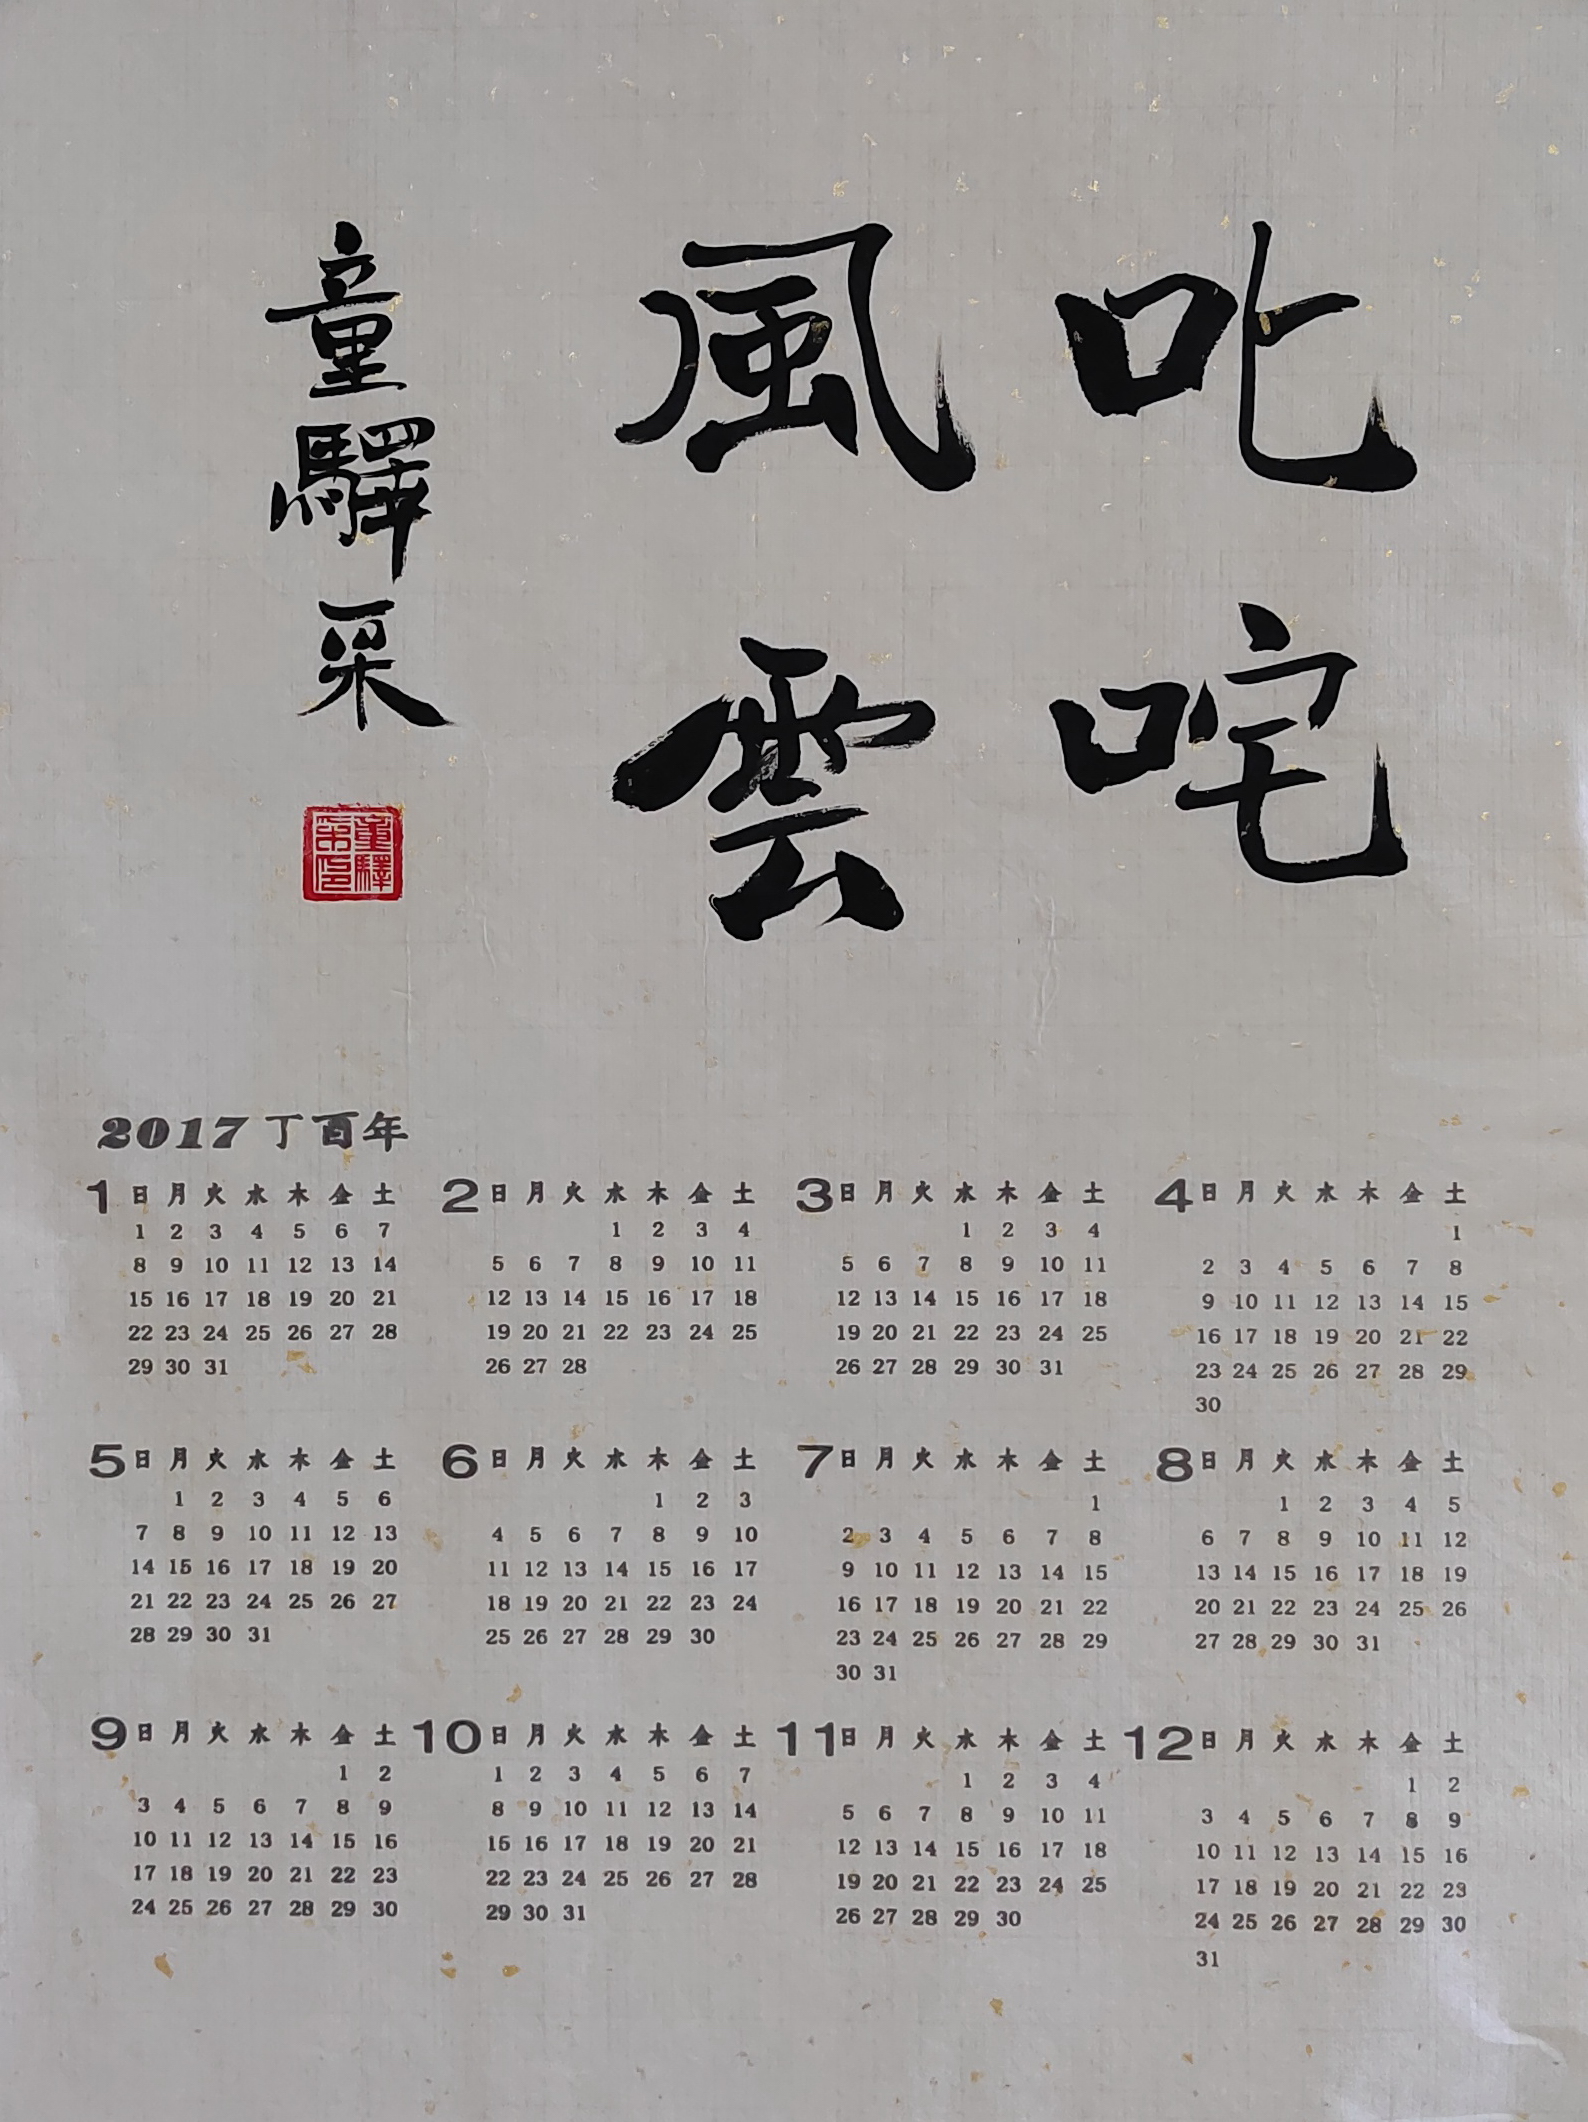 叱咤
風雲
童驛采
2017 丁酉年
1 日 月 火 水 木 金 土
1 2 3 4 5 6 7
8 9 10 11 12 13 14
15 16 17 18 19 20 21
22 23 24 25 26 27 28
29 30 31
2 日 月 火 水 木 金 土
1 2 3 4
5 6 7 8 9 10 11
12 13 14 15 16 17 18
19 20 21 22 23 24 25
26 27 28
3 日 月 火 水 木 金 土
1 2 3 4
5 6 7 8 9 10 11
12 13 14 15 16 17 18
19 20 21 22 23 24 25
26 27 28 29 30 31
4 日 月 火 水 木 金 土
1
2 3 4 5 6 7 8
9 10 11 12 13 14 15
16 17 18 19 20 21 22
23 24 25 26 27 28 29
30
5 日 月 火 水 木 金 土
1 2 3 4 5 6
7 8 9 10 11 12 13
14 15 16 17 18 19 20
21 22 23 24 25 26 27
28 29 30 31
6 日 月 火 水 木 金 土
1 2 3
4 5 6 7 8 9 10
11 12 13 14 15 16 17
18 19 20 21 22 23 24
25 26 27 28 29 30
7 日 月 火 水 木 金 土
1
2 3 4 5 6 7 8
9 10 11 12 13 14 15
16 17 18 19 20 21 22
23 24 25 26 27 28 29
30 31
8 日 月 火 水 木 金 土
1 2 3 4 5
6 7 8 9 10 11 12
13 14 15 16 17 18 19
20 21 22 23 24 25 26
27 28 29 30 31
9 日 月 火 水 木 金 土
1 2
3 4 5 6 7 8 9
10 11 12 13 14 15 16
17 18 19 20 21 22 23
24 25 26 27 28 29 30
10 日 月 火 水 木 金 土
1 2 3 4 5 6 7
8 9 10 11 12 13 14
15 16 17 18 19 20 21
22 23 24 25 26 27 28
29 30 31
11 日 月 火 水 木 金 土
1 2 3 4
5 6 7 8 9 10 11
12 13 14 15 16 17 18
19 20 21 22 23 24 25
26 27 28 29 30
12 日 月 火 水 木 金 土
1 2
3 4 5 6 7 8 9
10 11 12 13 14 15 16
17 18 19 20 21 22 23
24 25 26 27 28 29 30
31